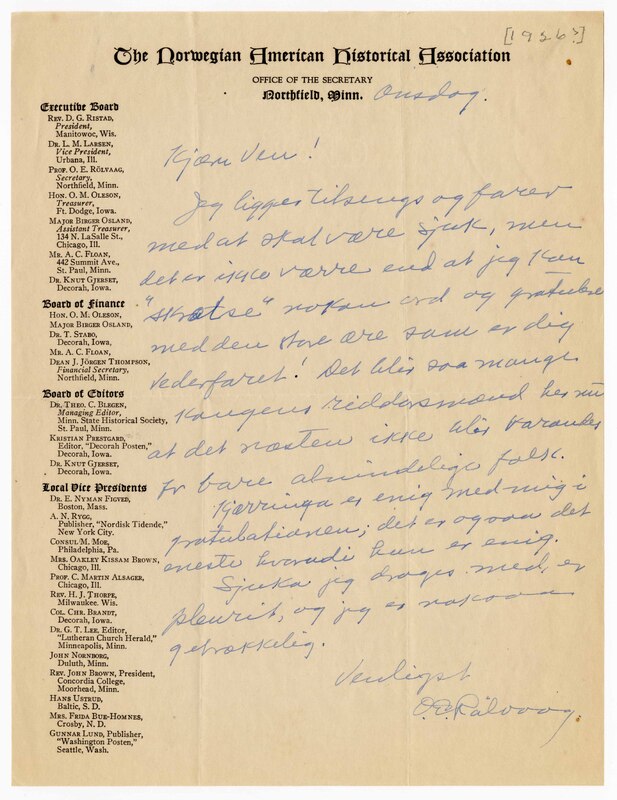 [1926?]
The Norwegian American Historical Association
OFFICE OF THE SECRETARY
Northfield, Minn.
Onsdag.
Executive Board
REV. D. G. RISTAD,
President,
Manitowoc, Wis.
DR. L. M. LARSEN,
Vice President,
Urbana, Ill.
PROF. O. E. RÖLVAAG,
Secretary,
Northfield, Minn.
HON. O. M. OLESON,
Treasurer,
Ft. Dodge, Iowa.
MAJOR BIRGER OSLAND,
Assistant Treasurer,
134 N. LaSalle St.,
Chicago, Ill.
MR. A. C. FLOAN,
442 Summit Ave.,
St. Paul, Minn.
DR. KNUT GJERSET,
Decorah, Iowa.
Board of Finance
HON. O. M. OLESON,
MAJOR BIRGER OSLAND,
DR. T. STABO,
Decorah, Iowa.
MR. A. C. FLOAN,
DEAN J. JÖRGEN THOMPSON,
Financial Secretary,
Northfield, Minn.
Board of Editors
DR. THEO. C. BLEGEN,
Managing Editor,
Minn. State Historical Society,
St. Paul, Minn.
KRISTIAN PRESTGARD,
Editor, "Decorah Posten,"
Decorah, Iowa.
DR. KNUT GJERSET,
Decorah, Iowa.
Local Vice Presidents
DR. E. NYMAN FIGVED,
Boston, Mass.
A. N. RYGG,
Publisher, "Nordisk Tidende,"
New York City.
CONSUL M. MOE,
Philadelphia, Pa.
MRS. OAKLEY KISSAM BROWN,
Chicago, Ill.
PROF. C. MARTIN ALSAGER,
Chicago, Ill.
REV. H. J. THORPE,
Milwaukee. Wis.
COL. CHR. BRANDT,
Decorah, Iowa.
DR. G. T. LEE, Editor,
"Lutheran Church Herald,"
Minneapolis, Minn.
JOHN NORNBORG,
Duluth, Minn.
REV. JOHN BROWN, President,
Concordia College,
Moorhead, Minn.
HANS USTRUD,
Baltic, S. D.
MRS. FRIDA BUE-HOMNES,
Crosby, N. D.
GUNNAR LUND, Publisher,
"Washington Posten,"
Seattle, Wash.
Kjære Ven!
Jeg ligger tilsengs og farer
med at skal være sjuk, men
det er ikke værre end at jeg kan
nokon ord og gratulere
med den store ære som er dig
vederfaret! Det blir saa mange
Kongens riddersmænd her nu
at det næsten ikke blir
for bare almindelige folk.
Kjærringa er enig med mig i
gratulationen; det er ogsaa det
eneste hvorudi hun er enig.
Sjuka jeg drages med, er
pleurit, og jeg er noksaa
Venligst
O.E. Rölvaag